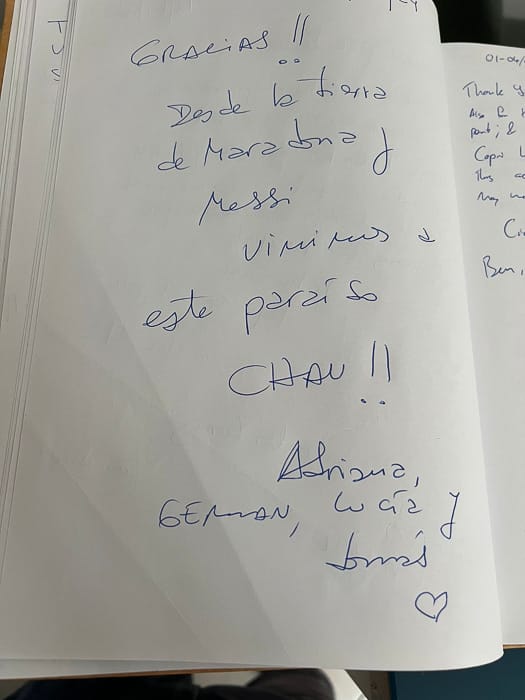 GRACIAS !!
Desde la tierra
de Maradona y
Messi
vinimos a
este paraíso
CHAU !!
Adriana,
GERMAN, Lucía y
tomás
♡
T
U
S
01-04/
Thank y
Capri
Ben,